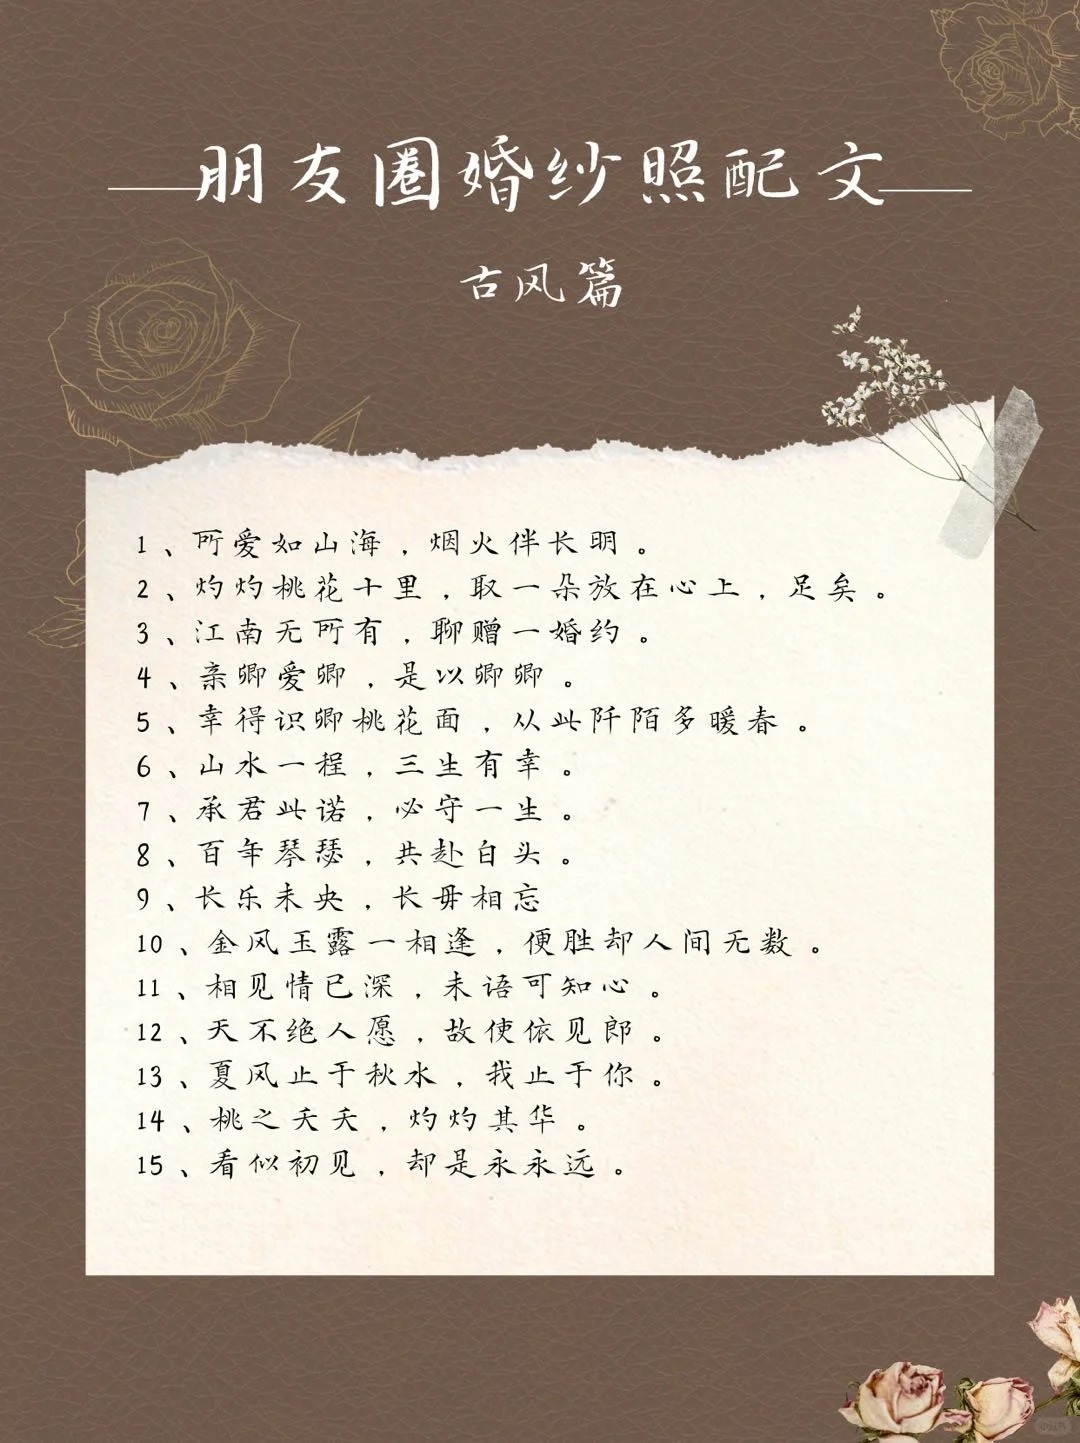 朋友圈婚纱照配文
古风篇
1、所爱如山海，烟火伴长明。
2、灼灼桃花十里，取一朵放在心上，足矣。
3、江南无所有，聊赠一婚约。
4、亲卿爱卿，是以卿卿。
5、幸得识卿桃花面，从此阡陌多暖春。
6、山水一程，三生有幸。
7、承君此诺，必守一生。
8、百年琴瑟，共赴白头。
9、长乐未央，长毋相忘
10、金风玉露一相逢，便胜却人间无数。
11、相见情已深，未语可知心。
12、天不绝人愿，故使侬见郎。
13、夏风止于秋水，我止于你。
14、桃之夭夭，灼灼其华。
15、看似初见，却是永永远。